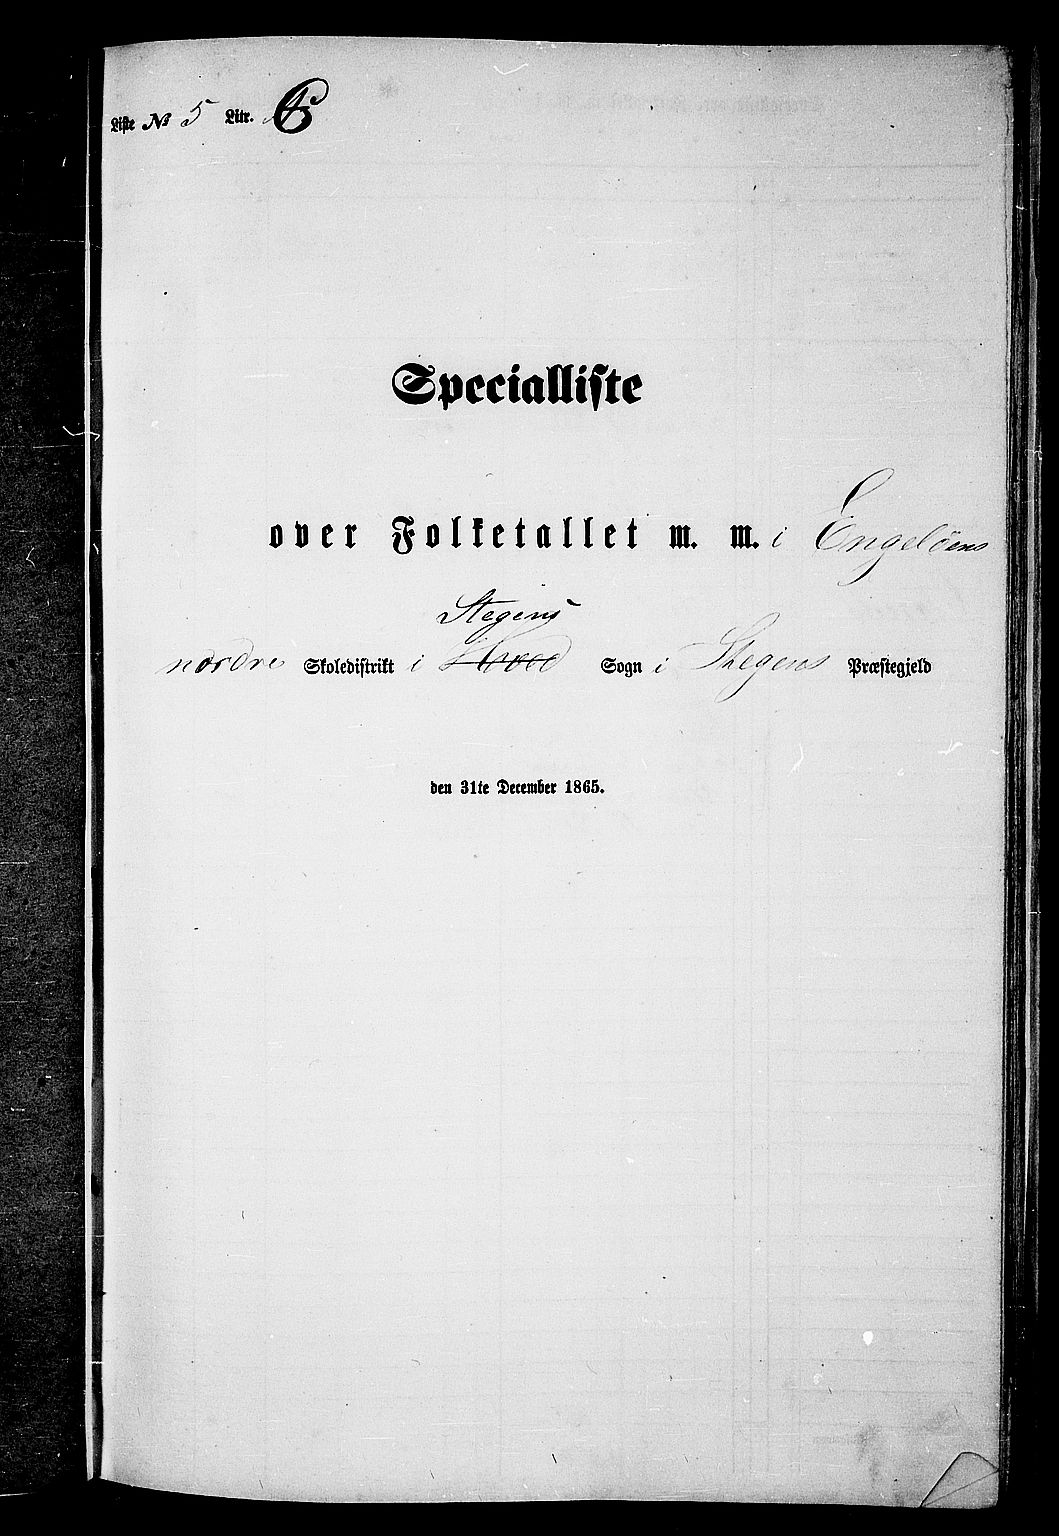 Liste № 5 Litr. C
Specialliste
over Folketallet m. m. i Engelöens
Stegens
nordre Skoledistrikt i Hoved Sogn i Stegens Præstegjeld
den 31te December 1865.